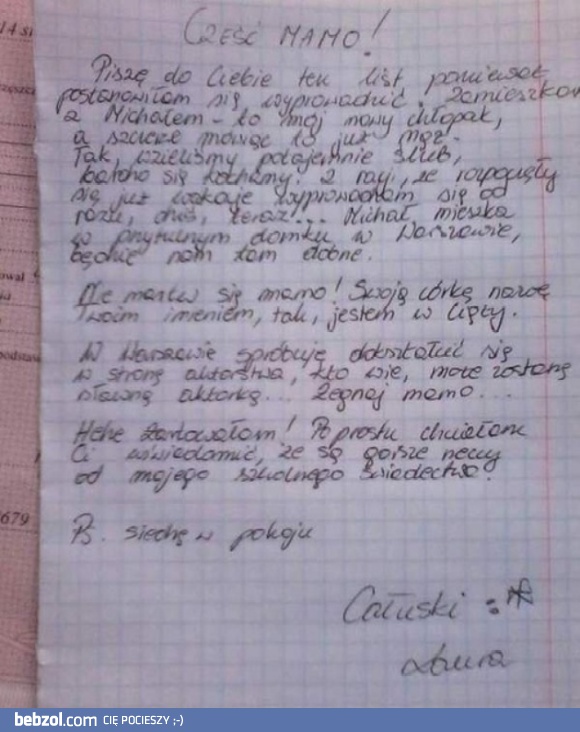 14 si
CZEŚĆ MAMO!
Piszę do Ciebie ten list ponieważ
postanowiłam się wyprowadzić. Zamieszkam
z Michałem - to mój nowy chłopak,
a szczerze mówiąc to już mąż.
Tak, wzieliśmy potajemnie ślub,
bardzo się kochamy! Z racji, że rozpoczęły
się już wakacje wyprowadzam się od
razu, dziś, teraz!... Michał mieszka
w przytulnym domku w Warszawie,
będzie nam tam dobrze.
Nie martw się mamo! Swoją córkę nazwę
Twoim imieniem, tak, jestem w ciąży.
W Warszawie spróbuję dokształcić się
w stronę aktorstwa, kto wie, może zostanę
sławną aktorką... Żegnaj mamo...
Hehe żartowałam! Po prostu chciałam
Ci uświadomić, że są gorsze rzeczy
od mojego szkolnego świadectwa!
Ps. siedzę w pokoju
Całuski :*
Laura
679
bebzol.com CIĘ POCIESZY ;-)